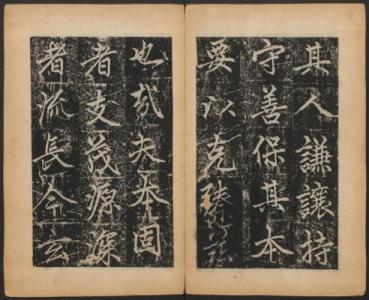 其人謙讓持
守善保其本
要以克
也哉夫本固
者支茂源深
者流長今玄